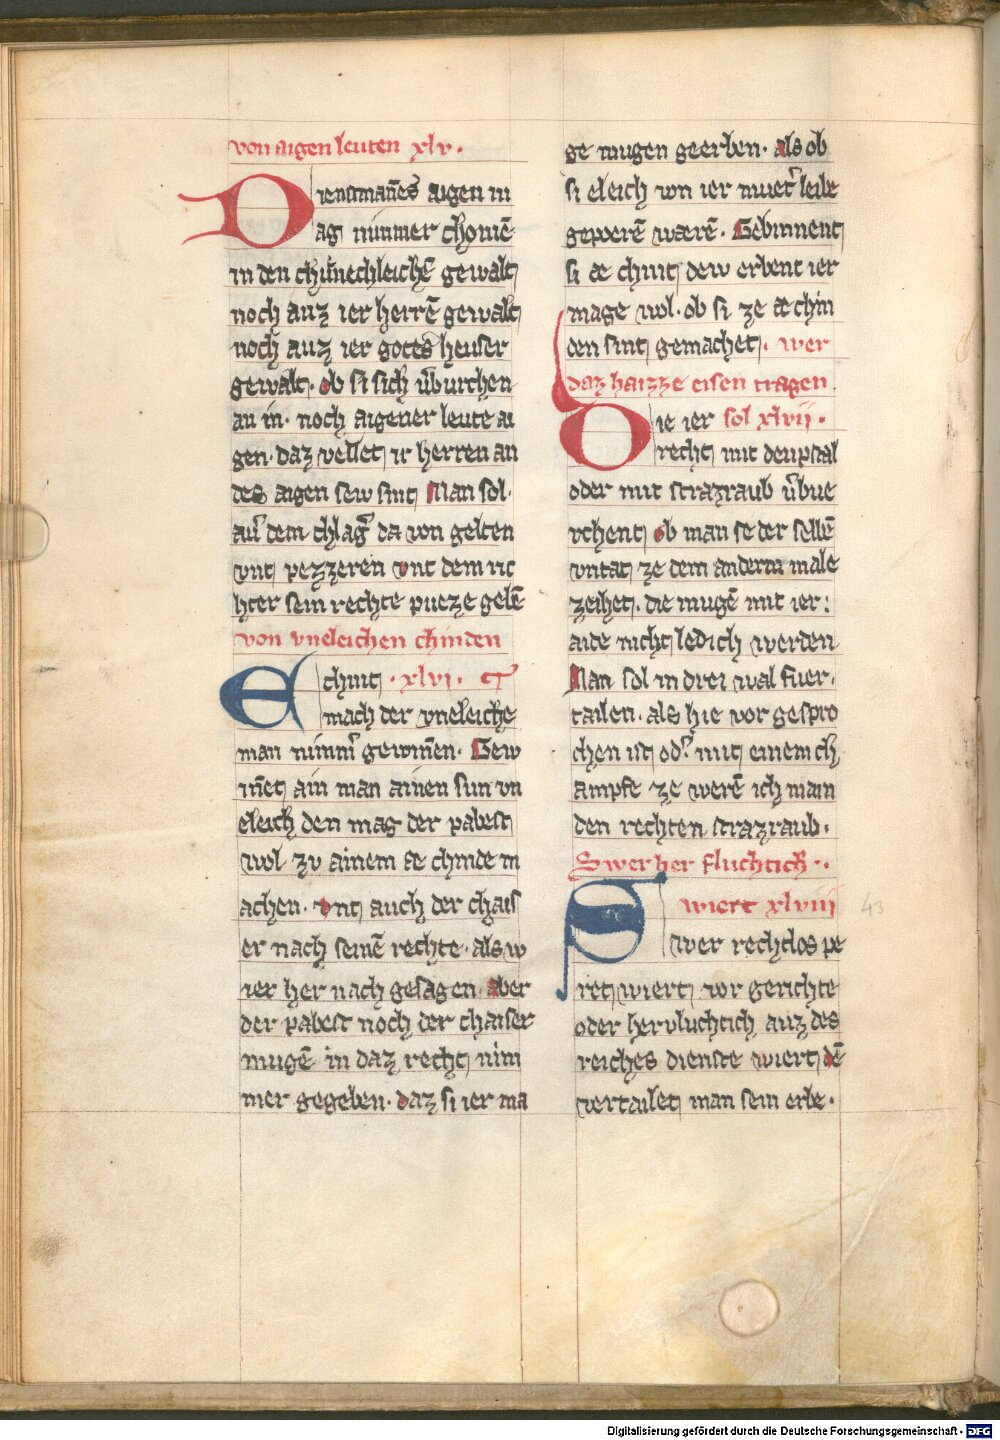 von aigen leuten xlv.
Dienstmañes aigen m
ag nimmer chomē
in den chunechleichē gewalt
noch auz ier herrē gewalt
noch auz ier gotes heuser
gewalt. ob si sich v̄burchen
an in. noch aigener leute ai
gen. daz vellet ir herren an
des aigen sew sint Man sol.
auf dem chlag̾ da von gelten
vnt pezzeren vnt dem ric
hter sein rechte pueze gebē
von vneleichen chinden
E chint .xlvi.
mach der vneleiche
man nimm̾ gewinnen. Gew
inet ain man ainen sun vn
eleich den mag der pabest
wol zv ainem æ chinde m
achen. vnt auch der chais
er nach seinē rechte. als w
ier her nach gesagen. aber
der pabest noch der chaiser
mugē in daz recht nim
mer gegeben. daz si ier ma
ge mugen geerben. als ob
si eleich von ier muet̾ leibe
geporē wærē. Gebinnent
si æ chint dew erbent ier
mage wol. ob si ze æ chin
den sint gemachet. wer
daz haizze eisen tragen
Die ier sol xlvii.
recht mit deupstal
oder mit strazraub v̄bue
rchent ob man se der sellē
vntat ze dem anderm male
zeihet. die mugē mit ier:
aide nicht ledich werden
Man sol in drei wal fuer.
tailen. als hie vor gespro
chen ist od̾ mit einem ch
ampfe ze werē ich main
den rechten strazraub.
Swer her fluchtich..
wiert xlviii
Swer rechtlos pe
ret wiert. vor gerichte
oder hervluchtich auz des
reiches dienste wiert dē
vertailet man sein erbe.
43
Digitalisierung gefördert durch die Deutsche Forschungsgemeinschaft - DFG